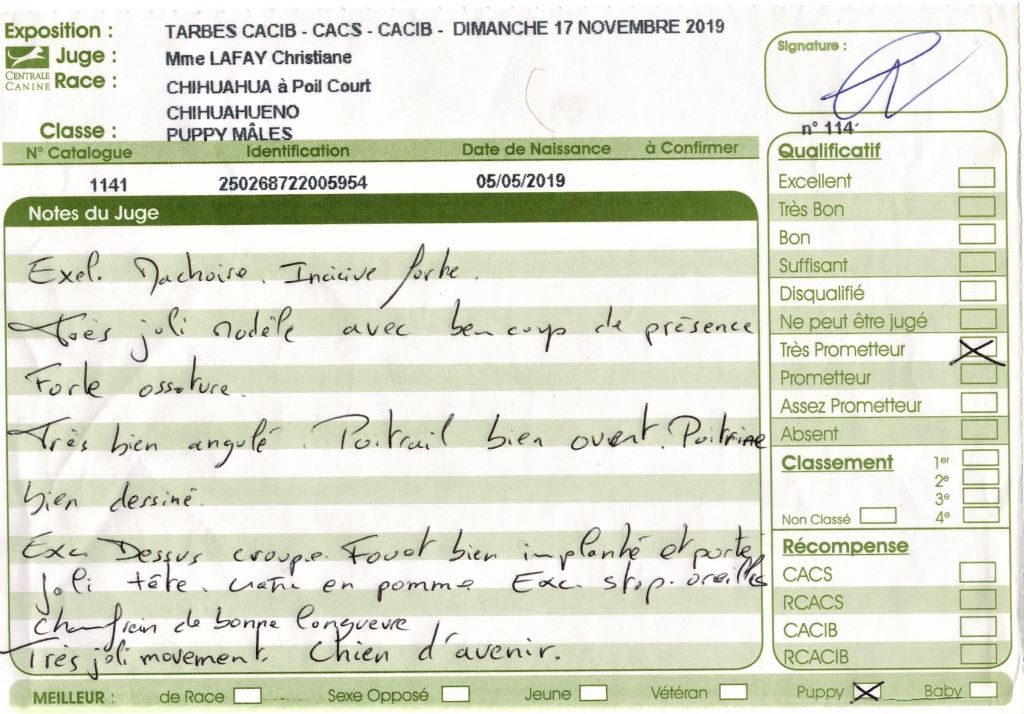 Exposition : TARBES CACIB - CACS - CACIB - DIMANCHE 17 NOVEMBRE 2019
CENTRALE CANINE
Juge : Mme LAFAY Christiane
Race : CHIHUAHUA à Poil Court
CHIHUAHUENO
Classe : PUPPY MÂLES
Signature :
n° 114
N° Catalogue Identification Date de Naissance à Confirmer
1141 250268722005954 05/05/2019
Notes du Juge
Exel. Machoire. Incicive forte.
Très joli modèle avec beucoup de présence
Forte ossature.
Très bien angulé. Poitrail bien ouvert. Poitrine
bien dessiné.
Exc. Dessus croupe. Fouet bien implanté et porté
Joli tête. en pomme Exc. stop. oreilles
Chamfrein de bonne longueure
Très joli movement. Chien d'avenir.
Qualificatif
Excellent
Très Bon
Bon
Suffisant
Disqualifié
Ne peut être jugé
Très Prometteur
Prometteur
Assez Prometteur
Absent
Classement 1er
2e
3e
Non Classé 4e
Récompense
CACS
RCACS
CACIB
RCACIB
MEILLEUR : de Race Sexe Opposé Jeune Vétéran Puppy Baby